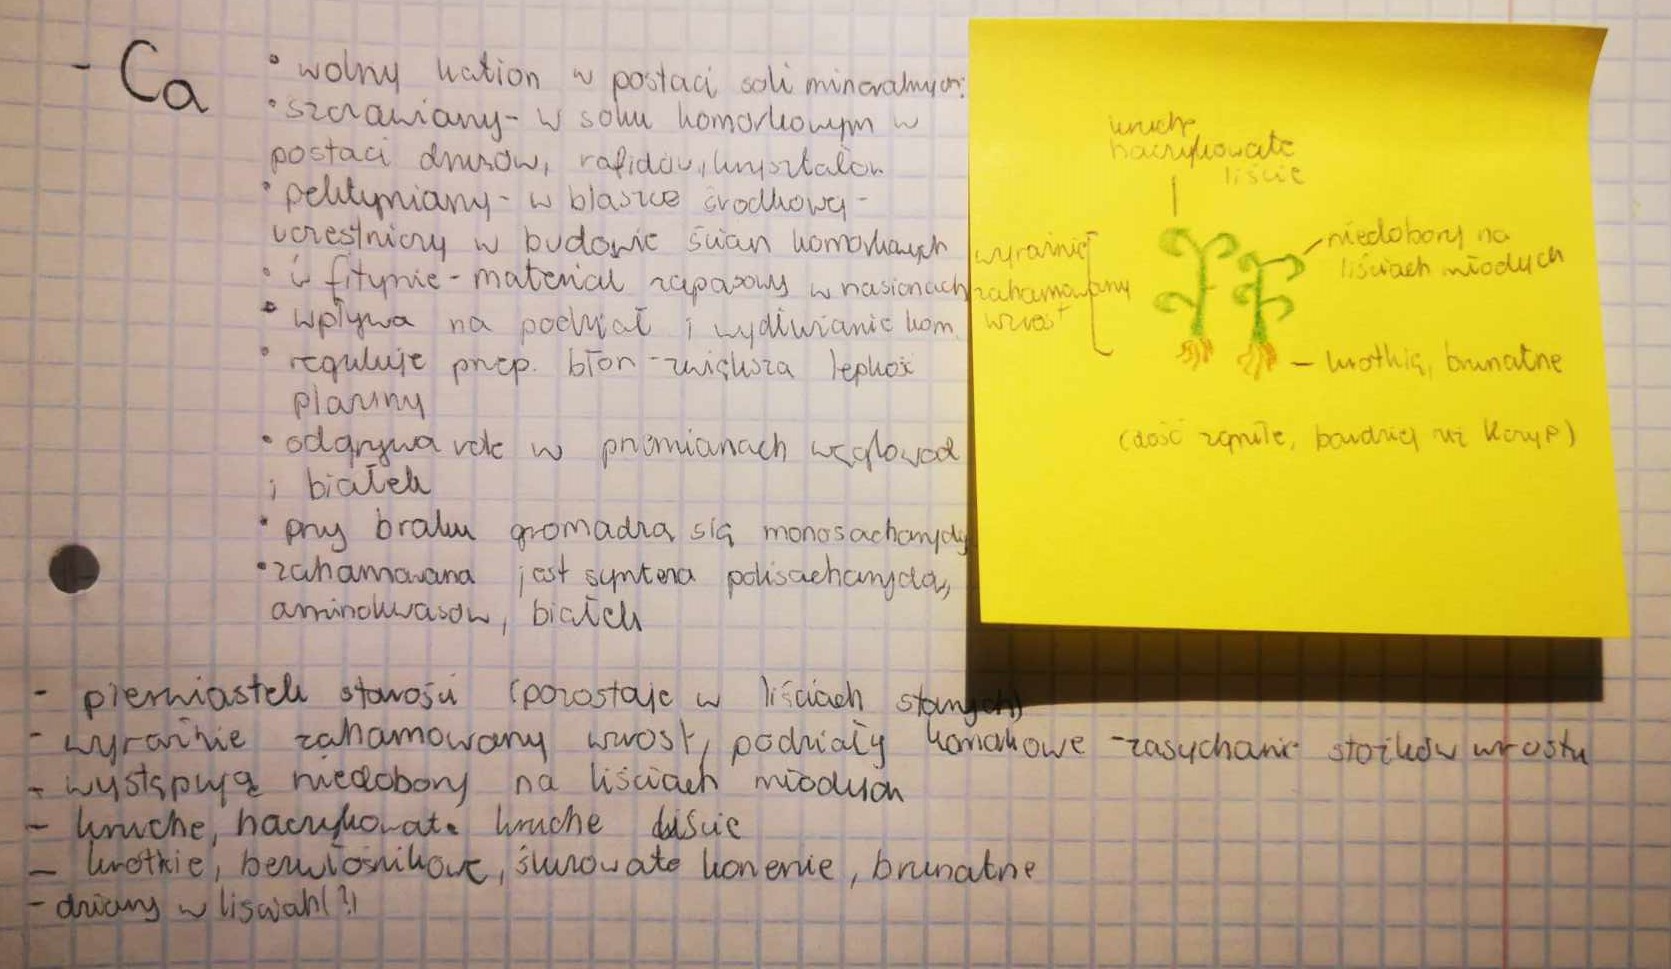 - Ca
• wolny kation w postaci soli mineralnych:
• szczawiany - w soku komorkowym w
postaci druzów, rafidów, kryształów
• pektyniany - w blaszce środkowej -
uczestniczy w budowie ścian komorkowych
• w fitynie - materiał zapasowy w nasionach
• wpływa na podział i wydłużanie kom.
• reguluje przep. błon - zwiększa lepkość
plazmy
• odgrywa role w przemianach węglowod
i białek
• przy braku gromadzą się monosacharydy
• zahamowana jest synteza polisacharydów,
aminokwasów, białek
- pierwiastek starości (pozostaje w liściach starych)
- wyraźnie zahamowany wzrost, podziały komorkowe - zasychanie stożków wzrostu
- występują niedobory na liściach młodych
- kruche, haczykowate kruche liście
- krotkie, bezwłośnikowe, śluzowate korzenie, brunatne
- dziury w lisciah (?)
kruche
haczykowate
liście
wyraźnie
zahamowany
wzrost
niedobory na
liściach młodych
- krotkie, brunatne
(dość zgniłe, bardziej niż kszyp)